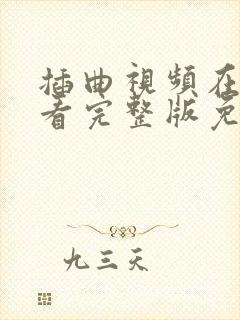 插曲視頻在
看完整版免
九三天